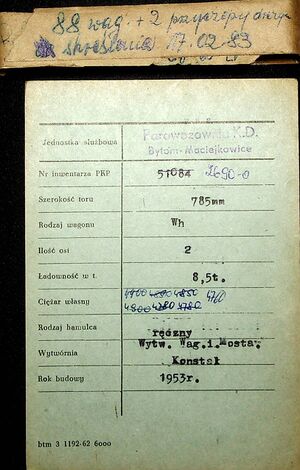 88 wag. + 2 przyczepy
skreślenia 17.02-83
Jednostka służbowa
Parowozownia K.D.
Bytom-Maciejkowice
Nr inwentarza PKP 51084 2690-0
Szerokość toru 785mm
Rodzaj wagonu Wh
Ilość osi 2
Ładowność w t. 8,5t.
Ciężar własny 4760
Rodzaj hamulca ręczny
Wytwórnia Wytw. Wag.i.Mostw.
Konstal
Rok budowy 1953r.
btm 3 1192-62 6000